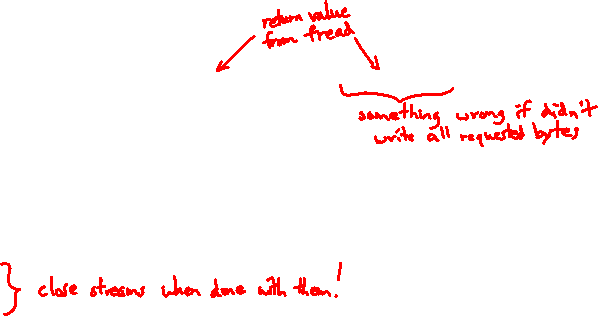 return value
from fread
something wrong if didn't
write all requested bytes
close streams when done with them!